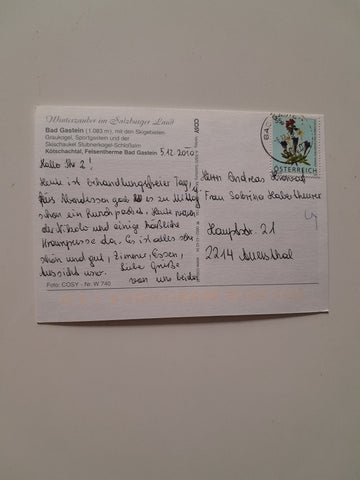 Winterzauber im Salzburger Land
Bad Gastein (1.083 m), mit den Skigebieten
Graukogel, Sportgastein und der
Skischaukel Stubnerkogel-Schloßalm
Kötschachtal, Felsentherme Bad Gastein 5.12.2010
Hallo Ihr 2!
Heute ist behandlungsfreier Tag,
fürs Abendessen gab es zu Mittag
schon ein Punsch. Heute waren
der Nikolo und einige häßliche
Krampusse da. Es ist alles sehr
schön und gut, Zimmer, Essen,
Aussicht usw. Liebe Grüße
von uns beiden
Foto: COSY - Nr. W 740
COSY
BAD
ÖSTERREICH
Herrn Andreas
Frau Sabrina
Hauptstr. 21
2214 Auersthal